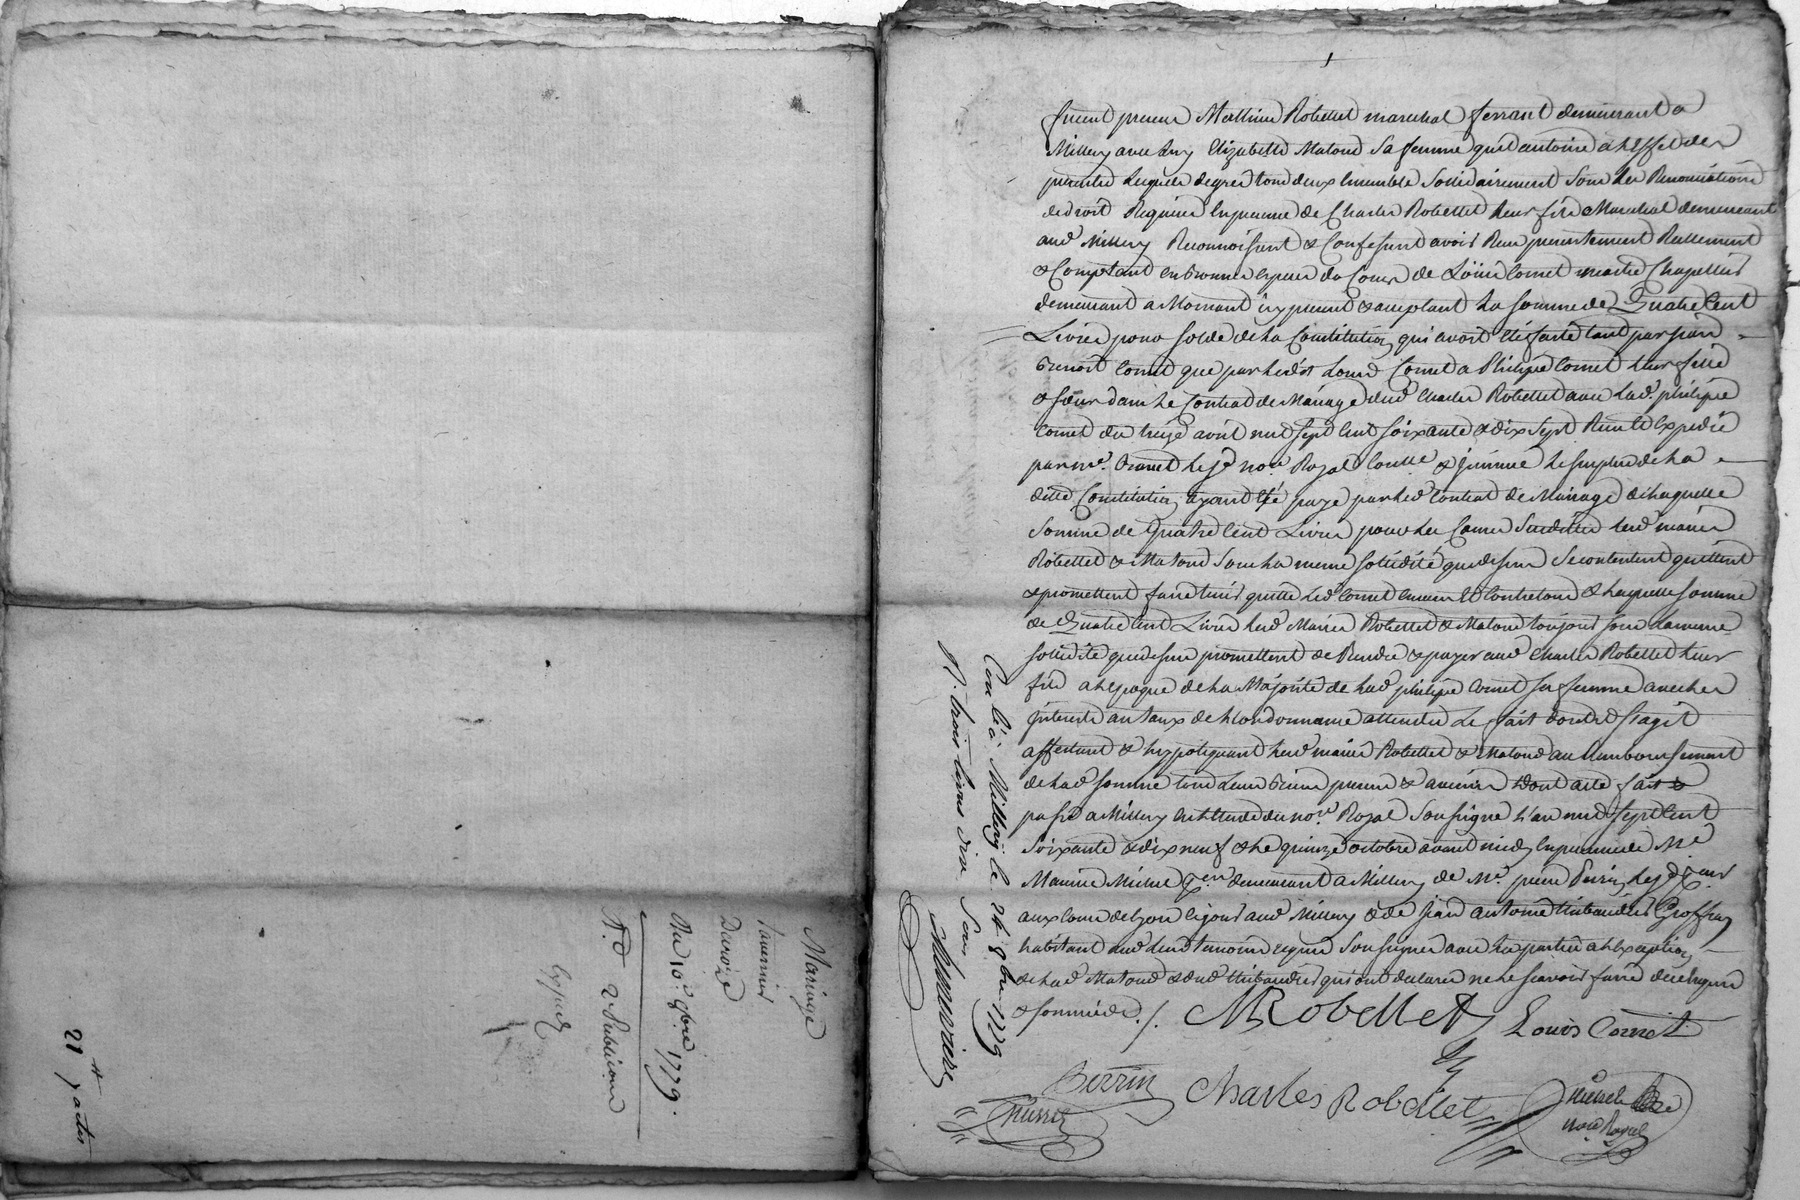 Mariage
Tournier
Daroize
Du 10e 9bre 1779.
2 Publicaon
Expedié
21 # 7 actes
furent presens Mathieu Robellet marechal ferrant demeurant a
Millery avec Elizabeth Matoud sa femme quil autorise a l'Effet des
presentes lesquels de gré tous deux Ensemble Sollidairement Sous les Renonciations
de droit Requises En presence de Charles Robellet leur fils Marechal demeurant
aud Millery Reconnoissent & Confessent avoir Reçu presentement Reellement
& Comptant En bonnes especes du Cours de Loüis Cornet maitre Chapellier
demeurant a Mornant icy present & acceptant La somme de Quatre Cent
Livres pour solde de la Constitution qui avoit Eté faite tant par
Benoit Cornet que par led Louis Cornet a Philipe Cornet leur fille
& sœur dans le Contrat de Mariage dud Charles Robellet avec lad. philipe
Cornet du treize avril mil sept cent soixante & dix sept Reçu & Expedié
par me. le je. nore Royal & le surplus de la
ditte Constitution ayant Eté payé par led Contrat de Mariage de laquelle
Somme de Quatre Cent Livres pour les Causes Susdittes lesd mariés
Robellet & Matoud Sous la meme sollidité que dessus Se contentent quittent
& promettent faire tenir quitte led Cornet Envers & Contre tous & laquelle somme
de Quatre Cent Livres lesd Mariés Robellet & Matoud toujours sous la meme
sollidité que dessus promettent de Rendre & payer aud Charles Robellet leur
fils a l'Epoque de la Majorité de lad philipe Cornet sa femme avec les
jnterets au taux de l'ordonnance attendu Le fait dont il s'agit
affectant & hypotequant lesd mariés Robellet & Matoud au Remboursement
de lad somme tous leurs biens presens & avenir Dont acte fait &
passé a Millery En l'Etude du nore. Royal Soussigné L'an mil sept Cent
Soixante & dix neuf & le quinze octobre avant midy En presence de Me
Maurice Michel demeurant a Millery de Me. pierre Perrin
aux Cours de Lyon aud Millery & de jean antoine Thibaudier
habitant aud lieu temoins requis Soussignes avec les parties a l'Exception
de lad Matoud & dud Thibaudier qui ont declaré ne le scavoir faire de ce Enquis
& sommés. /.
MRobellet Louis Cornet
Perrin Charles Robellet
nore Royal
Con lé à Millery le 24 8bre 1779
R. trois livres dix Sous